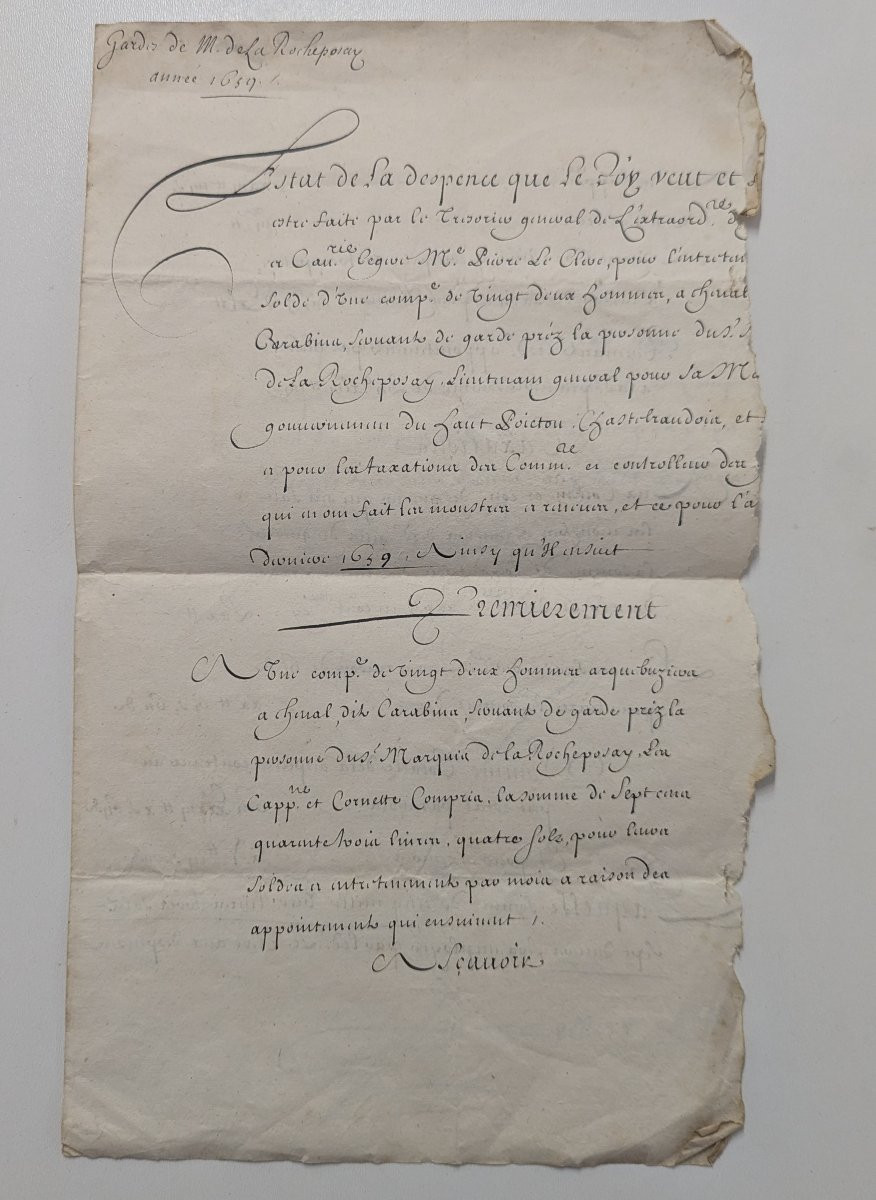 Gardes de Mr. de La Rocheposay
année 1659 /.
Estat de la despence que le Roy veut et
estre faite par le Tresorier general de L'extraord.re de
et Cau.rie legere Me. Pierre Le Clerc, pour l'entreten
solde d'Une comp.e de Vingt deux hommes, a cheual
Carabins, seruants de garde préz la personne du sr.
de La Rocheposay, Lieutenant general pour sa Ma
gouuernement du Haut Poictou, Chastelraudois, et
et pour les taxations des Comm.re et controlleurs des
qui en ont fait les monstres et reueues, et ce pour l'a
derniere 1659. Ainsy qu'Il ensuict
Premierement
A Une comp.e de Vingt deux hommes arquebuziers
a cheual, dits Carabins, seruants de garde préz la
personne du sr. Marquis de la Rocheposay, Les
Capp.ne et Cornette Compris, la somme de Sept cens
quarante trois liures, quatre sols, pour leurs
soldes et entretenement par mois a raison des
appointements qui ensuiuent /.
A Sçauoir